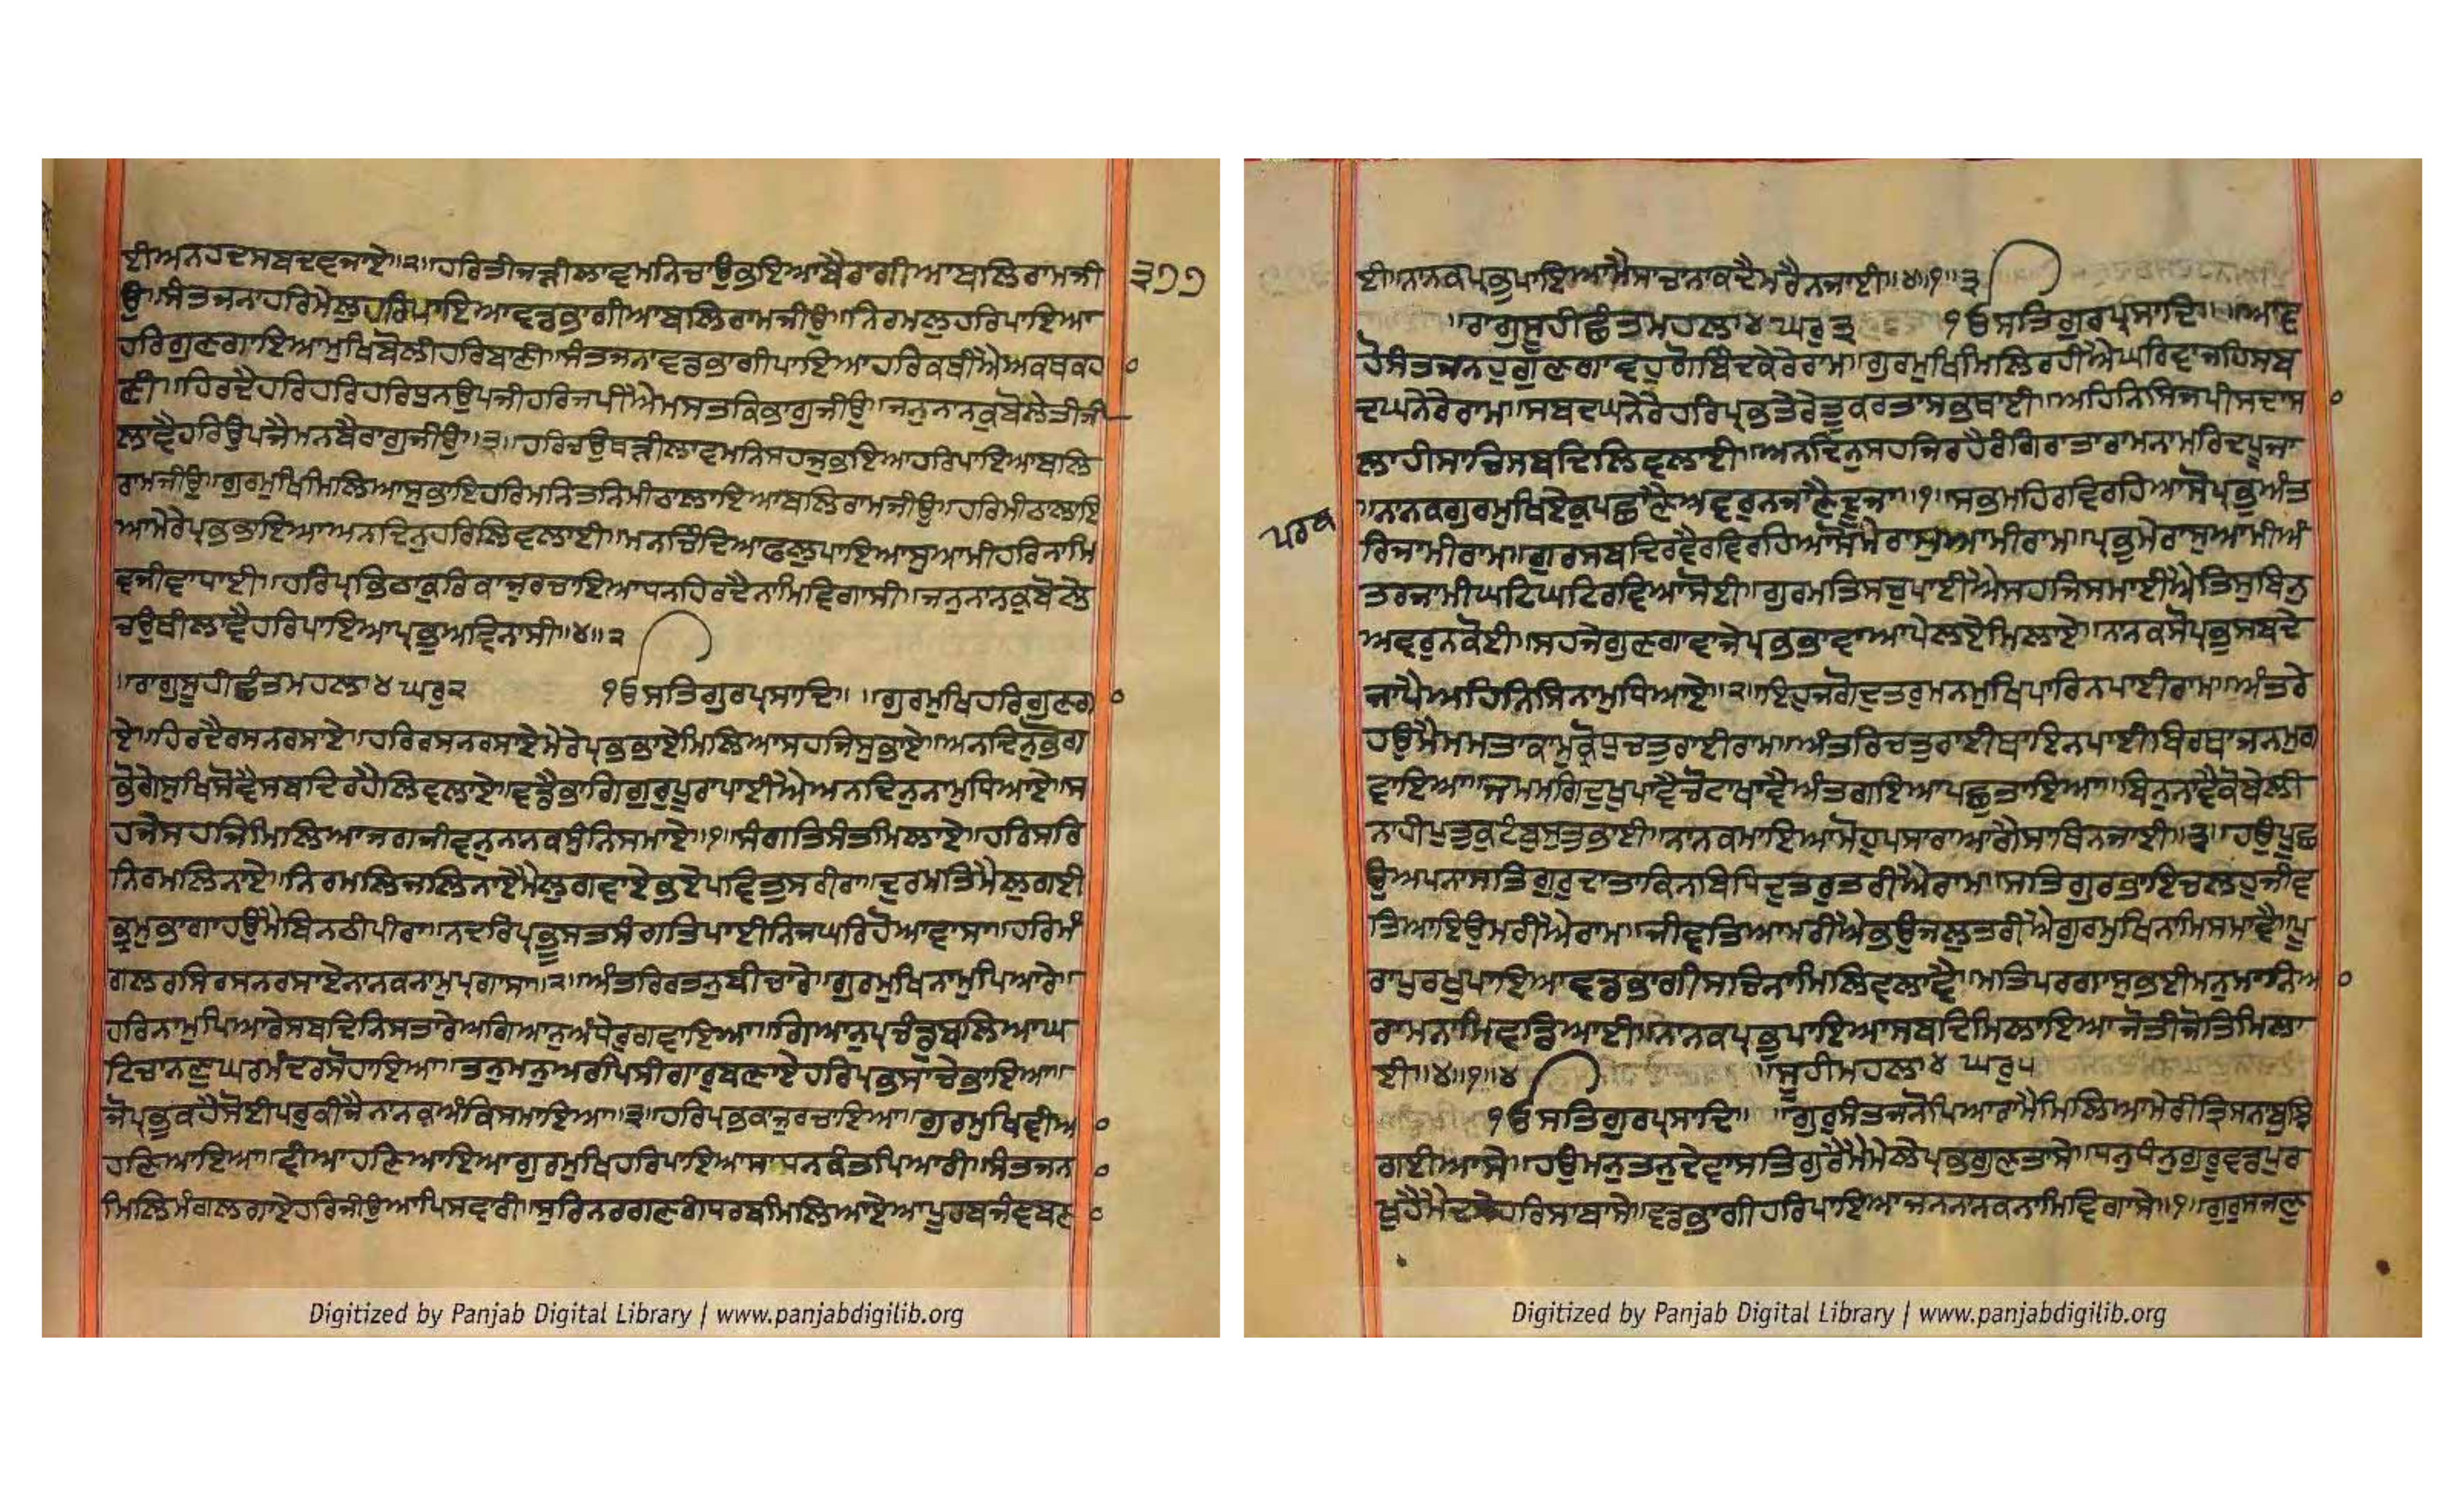 ਈਅਨਹਦਸਬਦਵਜਾਏ॥੨॥ਹਰਿਤੀਜੜੀਲਾਵਮਨਿਚਾਉਭਇਆਬੈਰਾਗੀਆਬਲਿਰਾਮਜੀ
੩੭੭
ਉ॥ਸੰਤਜਨਾਹਰਿਮੇਲੁਹਰਿਪਾਇਆਵਡਭਾਗੀਆਬਲਿਰਾਮਜੀਉ॥ਨਿਰਮਲੁਹਰਿਪਾਇਆ
ਹਰਿਗੁਣਗਾਇਆਮੁਖਿਬੋਲੀਹਰਿਬਾਣੀ॥ਸੰਤਜਨਾਵਡਭਾਗੀਪਾਇਆਹਰਿਕਥੀਐਅਕਥਕਹ
ਣੀ॥ਹਿਰਦੈਹਰਿਹਰਿਹਰਿਧੁਨਉਪਜੀਹਰਿਜਪੀਐਮਸਤਕਿਭਾਗੁਜੀਉ॥ਜਨੁਨਾਨਕੁਬੋਲੇਤੀਜੀ
ਲਾਵੈਹਰਿਉਪਜੈਮਨਬੈਰਾਗੁਜੀਉ॥੩॥ਹਰਿਚਉਥੜੀਲਾਵਮਨਿਸਹਜੁਭਇਆਹਰਿਪਾਇਆਬਲਿ
ਰਾਮਜੀਉ॥ਗੁਰਮੁਖਿਮਿਲਿਆਸੁਭਾਇਹਰਿਮਨਿਤਨਿਮੀਠਾਲਾਇਆਬਲਿਰਾਮਜੀਉ॥ਹਰਿਮੀਠਾਲਾਇ
ਆਮੇਰੇਪ੍ਰਭਭਾਇਆਅਨਦਿਨੁਹਰਿਲਿਵਲਾਈ॥ਮਨਚਿੰਦਿਆਫਲੁਪਾਇਆਸੁਆਮੀਹਰਿਨਾਮਿ
ਵਜੀਵਾਧਾਈ॥ਹਰਿਪ੍ਰਭਿਠਾਕੁਰਿਕਾਜੁਰਚਾਇਆਧਨਹਿਰਦੈਨਾਮਿਵਿਗਾਸੀ॥ਜਨੁਨਾਨਕੁਬੋਲੇ
ਚਉਥੀਲਾਵੈਹਰਿਪਾਇਆਪ੍ਰਭੁਅਵਿਨਾਸੀ॥੪॥੨
॥ਰਾਗੁਸੂਹੀਛੰਤਮਹਲਾ੪ਘਰੁ੨ ੴਸਤਿਗੁਰਪ੍ਰਸਾਦਿ॥ ॥ਗੁਰਮੁਖਿਹਰਿਗੁਣਗਾ
ਏ॥ਹਿਰਦੈਰਸਨਰਸਾਏ॥ਹਰਿਰਸਨਰਸਾਏਮੇਰੇਪ੍ਰਭਭਾਏਮਿਲਿਆਸਹਜਿਸੁਭਾਏ॥ਅਨਦਿਨੁਭੋਗ
ਭੋਗੇਸੁਖਿਸੋਵੈਸਬਦਿਰਹੈਲਿਵਲਾਏ॥ਵਡੈਭਾਗਿਗੁਰੁਪੂਰਾਪਾਈਐਅਨਦਿਨੁਨਾਮੁਧਿਆਏ॥ਸ
ਹਜੇਸਹਜਿਮਿਲਿਆਜਗਜੀਵਨੁਨਾਨਕਸੁੰਨਿਸਮਾਏ॥੧॥ਸੰਗਤਿਸੰਤਮਿਲਾਏ॥ਹਰਿਸਰਿ
ਨਿਰਮਲਿਨਾਏ॥ਨਿਰਮਲਿਜਲਿਨਾਏਮੈਲੁਗਵਾਏਭਏਪਵਿਤੁਸਰੀਰਾ॥ਦੁਰਮਤਿਮੈਲੁਗਈ
ਭ੍ਰਮੁਭਾਗਾਹਉਮੈਬਿਨਠੀਪੀਰਾ॥ਨਦਰਿਪ੍ਰਭੂਸਤਸੰਗਤਿਪਾਈਨਿਜਘਰਿਹੋਆਵਾਸਾ॥ਹਰਿਮੰ
ਗਲਰਸਿਰਸਨਰਸਾਏਨਾਨਕਨਾਮੁਪ੍ਰਗਾਸਾ॥੨॥ਅੰਤਰਿਰਤਨੁਬੀਚਾਰੇ॥ਗੁਰਮੁਖਿਨਾਮੁਪਿਆਰੇ॥
ਹਰਿਨਾਮੁਪਿਆਰੇਸਬਦਿਨਿਸਤਾਰੇਅਗਿਆਨੁਅੰਧੇਰੁਗਵਾਇਆ॥ਗਿਆਨੁਪ੍ਰਚੰਡੁਬਲਿਆਘ
ਟਿਚਾਨਣੁਘਰਮੰਦਰਸੋਹਾਇਆ॥ਤਨੁਮਨੁਅਰਪਿਸੀਗਾਰੁਬਣਾਏਹਰਿਪ੍ਰਭਸਾਚੇਭਾਇਆ॥
ਜੋਪ੍ਰਭੁਕਹੈਸੋਈਪਰੁਕੀਜੈਨਾਨਕਅੰਕਿਸਮਾਇਆ॥੩॥ਹਰਿਪ੍ਰਭਕਾਜੁਰਚਾਇਆ॥ਗੁਰਮੁਖਿਵੀਆ
ਹਣਿਆਇਆ॥ਵੀਆਹਣਿਆਇਆਗੁਰਮੁਖਿਹਰਿਪਾਇਆਸਾਧਨਕੰਤਪਿਆਰੀ॥ਸੰਤਜਨ
ਮਿਲਿਮੰਗਲਗਾਏਹਰਿਜੀਉਆਪਿਸਵਾਰੀ॥ਸੁਰਿਨਰਗਣਗੰਧਰਬਮਿਲਿਆਏਅਪੂਰਬਜੰਞਬਣ
Digitized by Panjab Digital Library | www.panjabdigilib.org
ਈ॥ਨਾਨਕਪ੍ਰਭੁਪਾਇਆਮੈਸਾਚਾਨਾਕਦੇਮਰੈਨਜਾਈ॥੪॥੧॥੩
॥ਰਾਗੁਸੂਹੀਛੰਤਮਹਲਾ੪ਘਰੁ੩ ੴਸਤਿਗੁਰਪ੍ਰਸਾਦਿ॥ ॥ਆਵ
ਹੋਸੰਤਜਨਹੁਗੁਣਗਾਵਹੁਗੋਬਿੰਦਕੇਰੇਰਾਮ॥ਗੁਰਮੁਖਿਮਿਲਿਰਹੀਐਘਰਿਵਾਜਹਿਸਬ
ਦਘਨੇਰੇਰਾਮ॥ਸਬਦਘਨੇਰੇਹਰਿਪ੍ਰਭਤੇਰੇਤੂਕਰਤਾਸਭਥਾਈ॥ਅਹਿਨਿਸਿਜਪੀਸਦਾਸ
ਲਾਹੀਸਾਚਿਸਬਦਿਲਿਵਲਾਈ॥ਅਨਦਿਨੁਸਹਜਿਰਹੈਰੰਗਿਰਾਤਾਰਾਮਨਾਮੁਰਿਦਪੂਜਾ
॥ਨਾਨਕਗੁਰਮੁਖਿਏਕੁਪਛਾਣੈਅਵਰੁਨਜਾਣੈਦੂਜਾ॥੧॥ਸਭਮਹਿਰਵਿਰਹਿਆਸੋਪ੍ਰਭੁਅੰਤ
ਰਿਜਾਮੀਰਾਮ॥ਗੁਰਸਬਦਿਰਵੈਰਵਿਰਹਿਆਸੋਮੇਰਾਸੁਆਮੀਰਾਮ॥ਪ੍ਰਭੁਮੇਰਾਸੁਆਮੀਅੰ
ਤਰਜਾਮੀਘਟਿਘਟਿਰਵਿਆਸੋਈ॥ਗੁਰਮਤਿਸਚੁਪਾਈਐਸਹਜਿਸਮਾਈਐਤਿਸੁਬਿਨੁ
ਅਵਰੁਨਕੋਈ॥ਸਹਜੇਗੁਣਗਾਵਾਜੇਪ੍ਰਭਭਾਵਾਆਪੇਲਏਮਿਲਾਏ॥ਨਾਨਕਸੋਪ੍ਰਭੁਸਬਦੇ
ਜਾਪੈਅਹਿਨਿਸਿਨਾਮੁਧਿਆਏ॥੨॥ਇਹੁਜਗੋਦੁਤਰੁਮਨਮੁਖਿਪਾਰਿਨਪਾਈਰਾਮ॥ਅੰਤਰੇ
ਹਉਮੈਮਮਤਾਕਾਮੁਕ੍ਰੋਧੁਚਤੁਰਾਈਰਾਮ॥ਅੰਤਰਿਚਤੁਰਾਈਥਾਇਨਪਾਈਬਿਰਥਾਜਨਮੁਗ
ਵਾਇਆ॥ਜਮਮਗਿਦੁਖੁਪਾਵੈਚੋਟਾਖਾਵੈਅੰਤਿਗਇਆਪਛੁਤਾਇਆ॥ਬਿਨੁਨਾਵੈਕੋਬੇਲੀ
ਨਾਹੀਪੁਤੁਕੁਟੰਬੁਸੁਤੁਭਾਈ॥ਨਾਨਕਮਾਇਆਮੋਹੁਪਸਾਰਾਆਗੈਸਾਥਿਨਜਾਈ॥੩॥ਹਉਪੂਛ
ਉਅਪਨਾਸਤਿਗੁਰੁਦਾਤਾਕਿਨਬਿਧਿਦੁਤਰੁਤਰੀਐਰਾਮ॥ਸਤਿਗੁਰਭਾਇਚਲਹੁਜੀਵ
ਤਿਆਇਉਮਰੀਐਰਾਮ॥ਜੀਵਤਿਆਮਰੀਐਭਉਜਲੁਤਰੀਐਗੁਰਮੁਖਿਨਾਮਿਸਮਾਵੈ॥ਪੂ
ਰਾਪੁਰਖੁਪਾਇਆਵਡਭਾਗੀਸਾਚਿਨਾਮਿਲਿਵਲਾਵੈ॥ਮਤਿਪਰਗਾਸੁਭਈਮਨੁਮਾਨਿਆ
ਰਾਮਨਾਮਿਵਡਿਆਈ॥ਨਾਨਕਪ੍ਰਭੁਪਾਇਆਸਬਦਿਮਿਲਾਇਆਜੋਤੀਜੋਤਿਮਿਲਾ
ਈ॥੪॥੧॥੪ ॥ਸੂਹੀਮਹਲਾ੪ ਘਰੁ੫
ੴਸਤਿਗੁਰਪ੍ਰਸਾਦਿ॥ ॥ਗੁਰੁਸੰਤਜਨੋਪਿਆਰਾਮੈਮਿਲਿਆਮੇਰੀਤ੍ਰਿਸਨਾਬੁਝਿ
ਗਈਆਸੇ॥ਹਉਮਨੁਤਨੁਦੇਵਾਸਤਿਗੁਰੈਮੈਮੇਲੇਪ੍ਰਭਗੁਣਤਾਸੇ॥ਧਨੁਧੰਨੁਗੁਰੂਵਡਪੁਰ
ਖੁਹੈਮੈਦਸੇਹਰਿਸਾਬਾਸੇ॥ਵਡਭਾਗੀਹਰਿਪਾਇਆਜਨਨਾਨਕਨਾਮਿਵਿਗਾਸੇ॥੧॥ਗੁਰੁਸਜਣੁ
Digitized by Panjab Digital Library | www.panjabdigilib.org